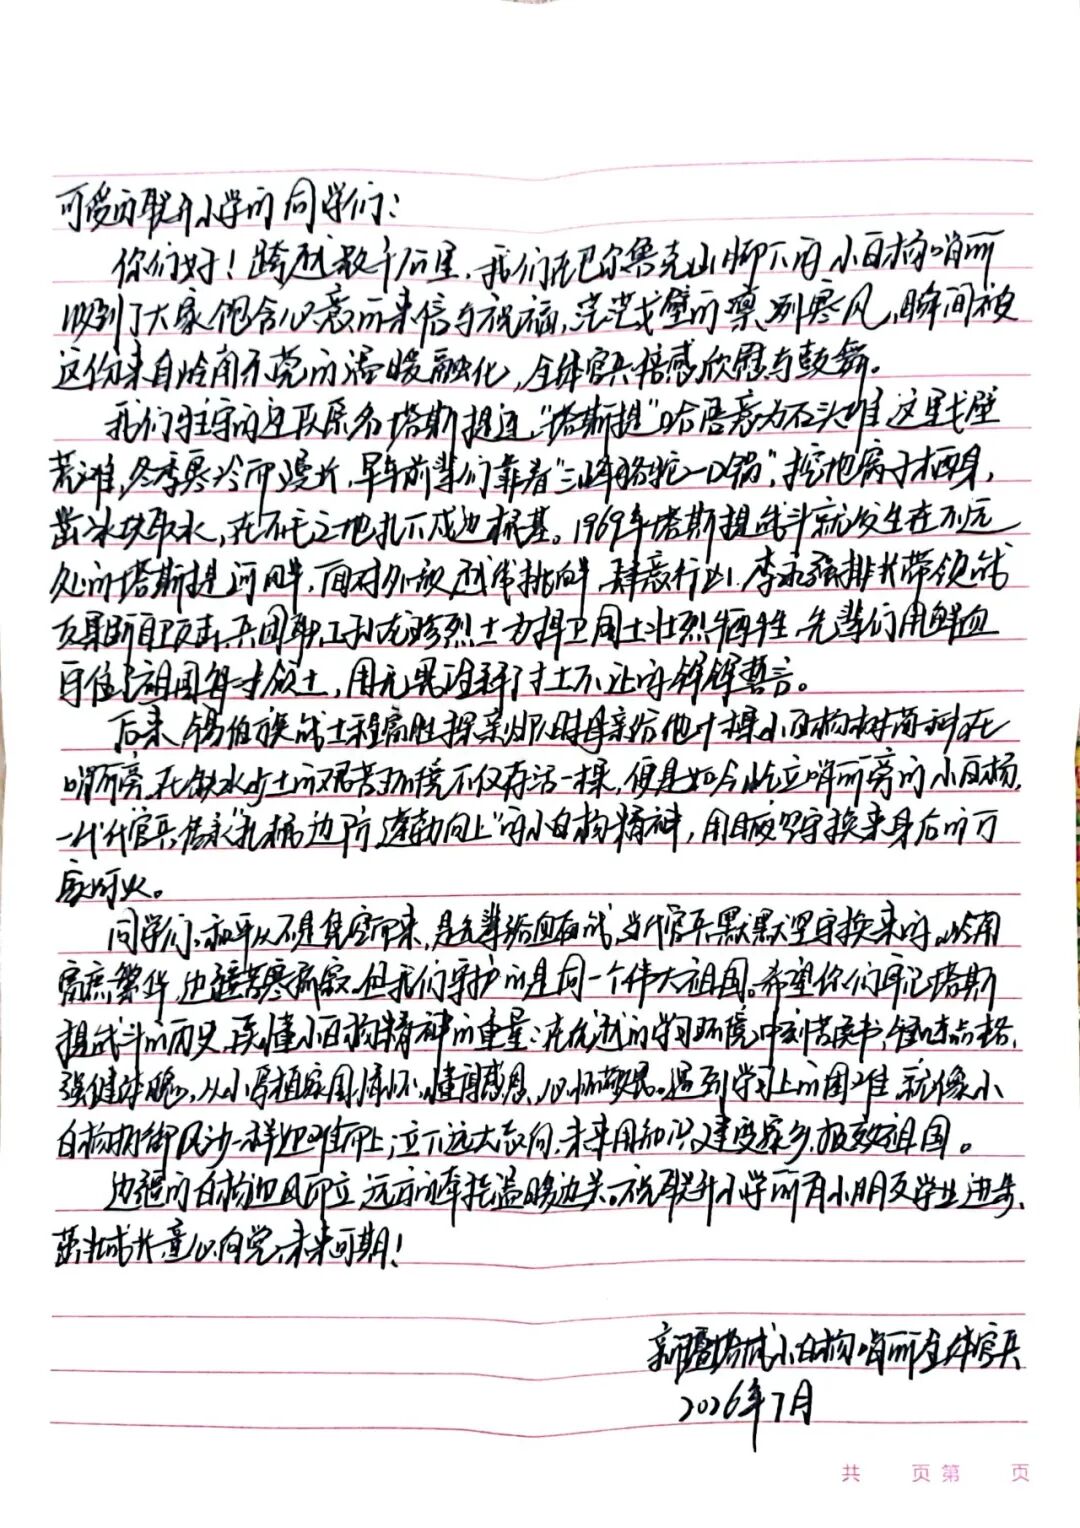 可爱的联升小学的同学们:
你们好！跨越数千公里，我们在巴尔鲁克山脚下的小白杨哨所
收到了大家饱含心意的来信与祝福，茫茫戈壁的凛冽寒风，瞬间被
这份来自岭南东莞的温暖融化，全体官兵倍感欣慰与鼓舞。
我们驻守的连队原名塔斯提连，“塔斯提”哈语意为石头堆 这里戈壁
荒滩，冬季寒冷而漫长，早年前辈们靠着“三峰骆驼一口锅”，挖地窝子栖身，
凿冰块取水，在不毛之地扎下戍边根基。1969年塔斯提战斗就发生在不远
处的塔斯提河畔，面对外敌越线挑衅，肆意行凶，李永强排长带领战
友果断自卫反击，兵团职工孙龙珍烈士为捍卫国土壮烈牺牲，先辈们用鲜血
守住了祖国每寸领土，用无畏诠释了寸土不让的铮铮誓言。
后来 锡伯族战士程富胜探亲归队时母亲给他十棵小白杨树苗 种在
哨所旁，在缺水少土的艰苦环境下仅存活一棵，便是如今屹立哨所旁的小白杨，
一代代官兵传承“扎根边防，蓬勃向上”的小白杨精神，用日夜坚守换来身后的万
家灯火。
同学们，和平从不是凭空而来，是先辈浴血奋战，当代官兵默默坚守换来的。岭南
富庶繁华，边疆苦寒孤寂，但我们守护的是同一个伟大祖国。希望你们牢记塔斯
提战斗的历史，读懂小白杨精神的重量；在优越的学习环境中刻苦读书，锤炼品格，
强健体魄，从小厚植家国情怀，懂得感恩，心怀敬畏。遇到学习上的困难，就像小
白杨抵御风沙一样迎难而上；立下远大志向，未来用知识建设家乡，报效祖国。
边疆的白杨迎风而立，远方的牵挂温暖边关。祝联升小学所有小朋友学业进步、
茁壮成长，童心向党，未来可期！
新疆塔城小白杨哨所全体官兵
2026年7月
共 页 第 页